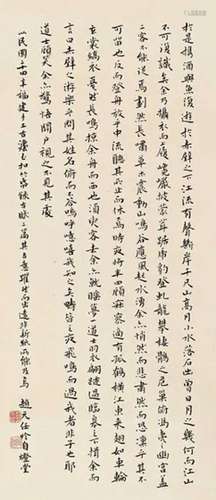 於是攜酒與魚復遊於赤壁之下江流有聲斷岸千尺山高月小水落石出曾日月之幾何而江山
不可復識矣余乃攝衣而上履巉巖披蒙茸踞虎豹登虬龍攀棲鶻之危巢俯馮夷之幽宮蓋
二客不能從焉劃然長嘯草木震動山鳴谷應風起水涌余亦悄然而悲肅然而恐凜乎其不
可留也反而登舟放乎中流聽其所止而休焉時夜將半四顧寂寥適有孤鶴橫江東來翅如車輪
玄裳縞衣戛然長鳴掠余舟而西也須臾客去余亦就睡夢一道士羽衣翩躚過臨皋之下揖余而
言曰赤壁之遊樂乎問其姓名俯而不答嗚呼噫嘻我知之矣疇昔之夜飛鳴而過我者非子也耶
道士顧笑余亦驚悟開戶視之不見其處
以民國二十四年福建